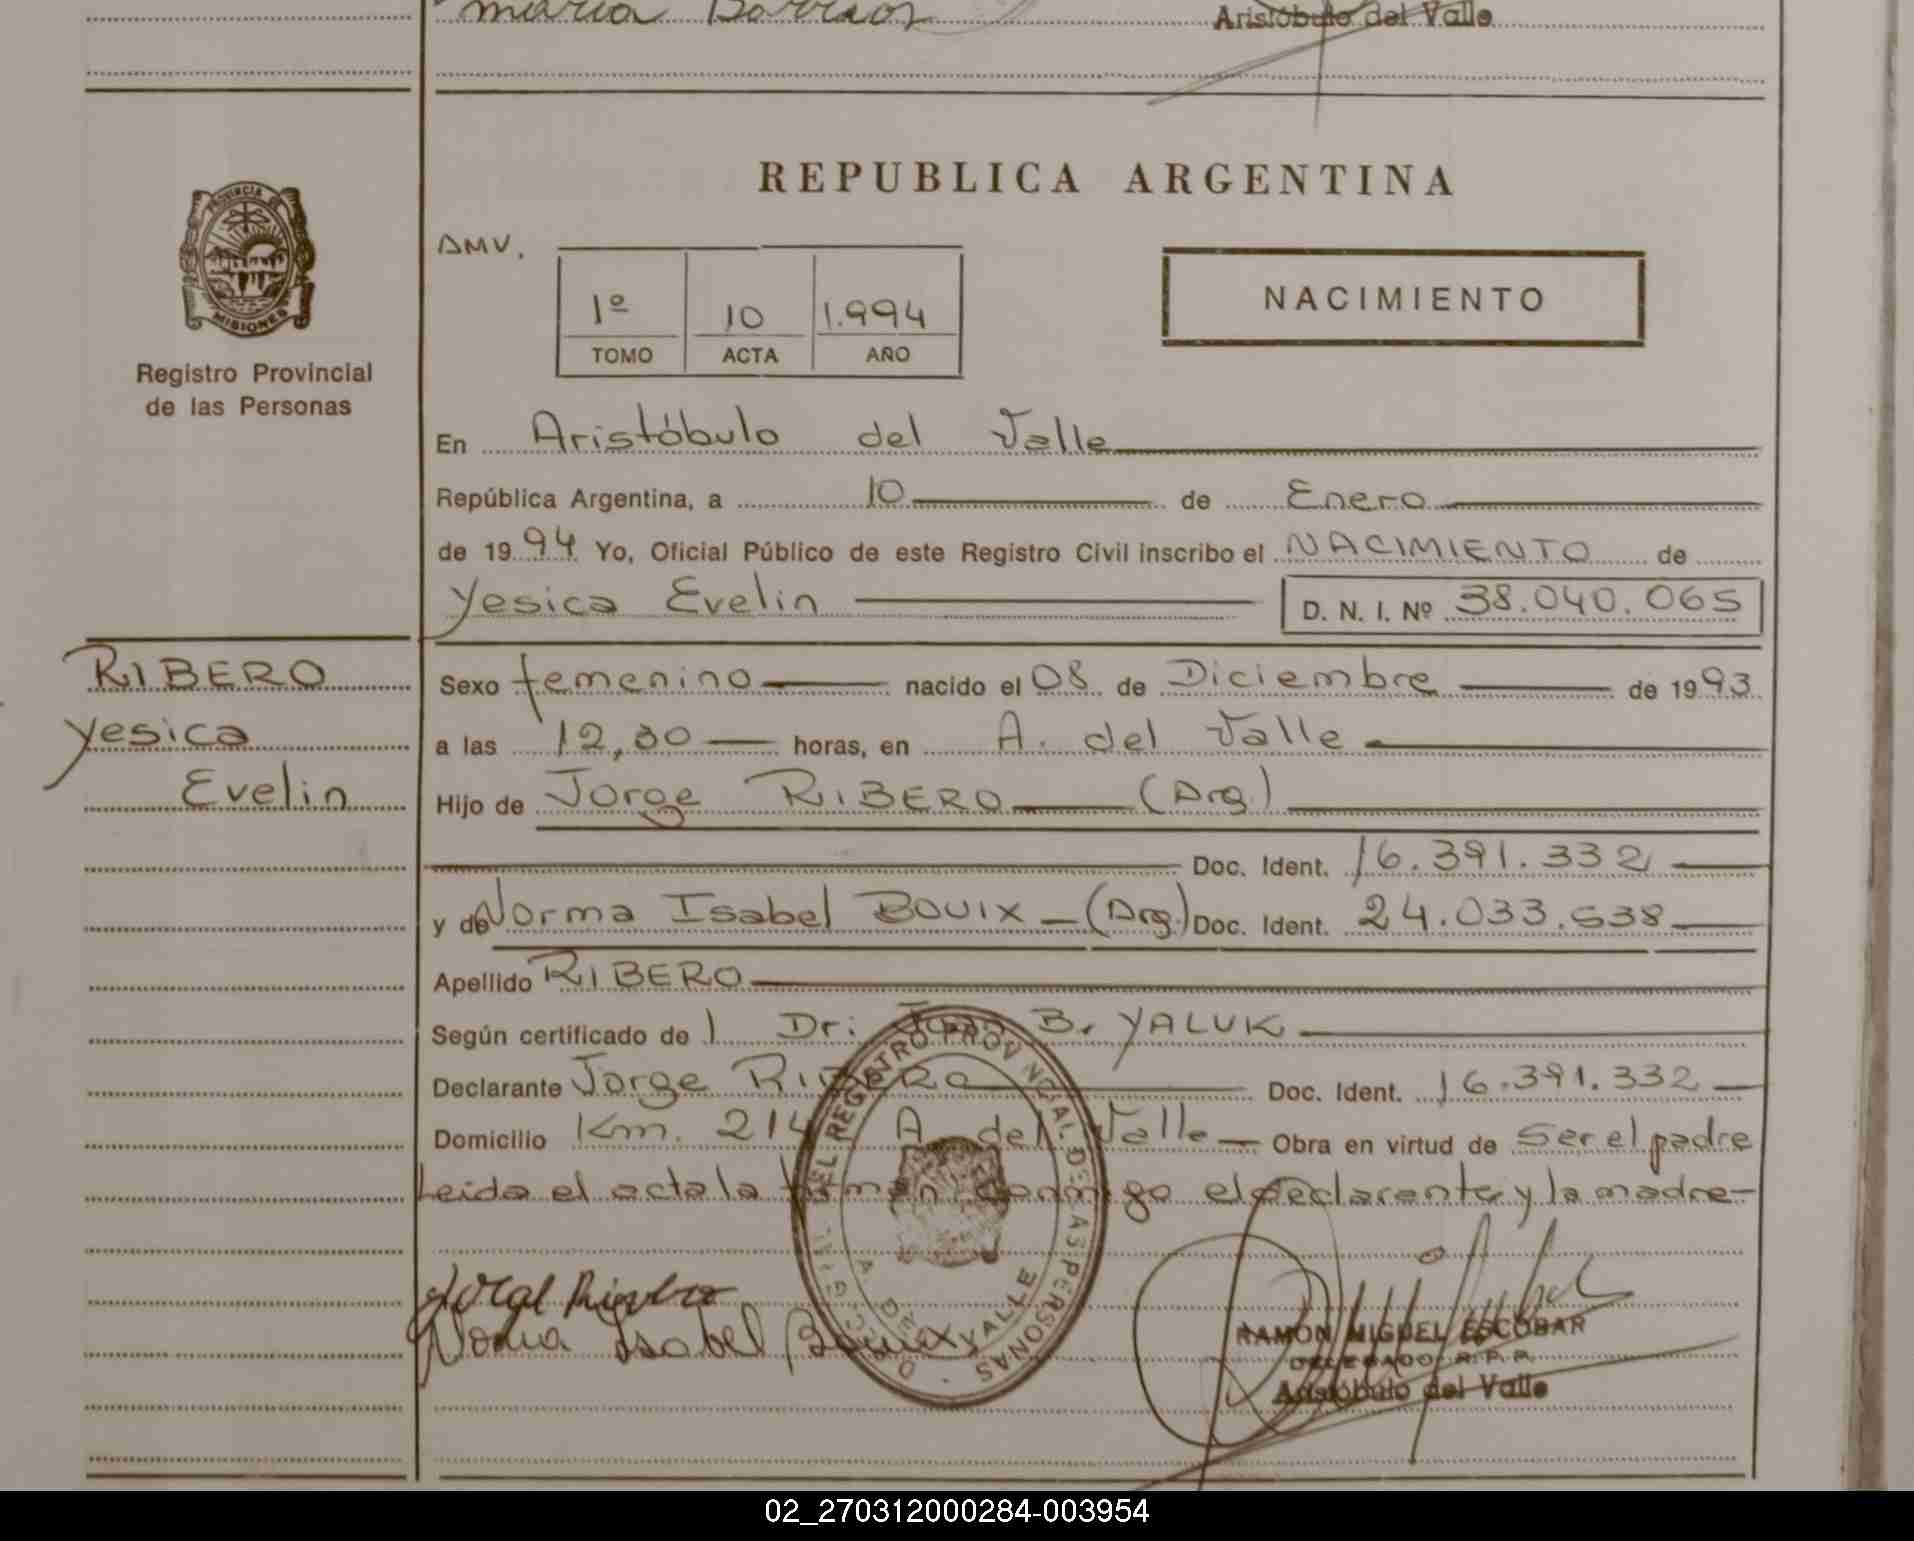 maria Barrios
Aristóbulo del Valle
PROVINCIA DE
MISIONES
Registro Provincial
de las Personas
REPUBLICA ARGENTINA
DMV.
1º 10 1.994
TOMO ACTA AÑO
NACIMIENTO
En Aristóbulo del Valle
República Argentina, a 10 de Enero
de 1994 Yo, Oficial Público de este Registro Civil inscribo el NACIMIENTO de
Yesica Evelin D. N. I. Nº 38.040.065
RIBERO
Yesica
Evelin
Sexo femenino nacido el 08 de Diciembre de 1993
a las 12,30 horas, en A. del Valle
Hijo de Jorge RIBERO (Arg.)
Doc. Ident. 16.391.332
y de Norma Isabel BOUIX (Arg.) Doc. Ident. 24.033.638
Apellido RIBERO
Según certificado de l Dr: Juan B. YALUK
Declarante Jorge RIBERO Doc. Ident. 16.391.332
Domicilio Km. 214 A. del Valle Obra en virtud de Ser el padre
Leida el acta la firman conmigo el declarante y la madre
DEL REGISTRO PROVINCIAL DE LAS PERSONAS
A. DEL VALLE
Norma Isabel Bouix
RAMON MIGUEL ESCOBAR
DELEGADO R.P.P.
Aristóbulo del Valle
02_270312000284-003954